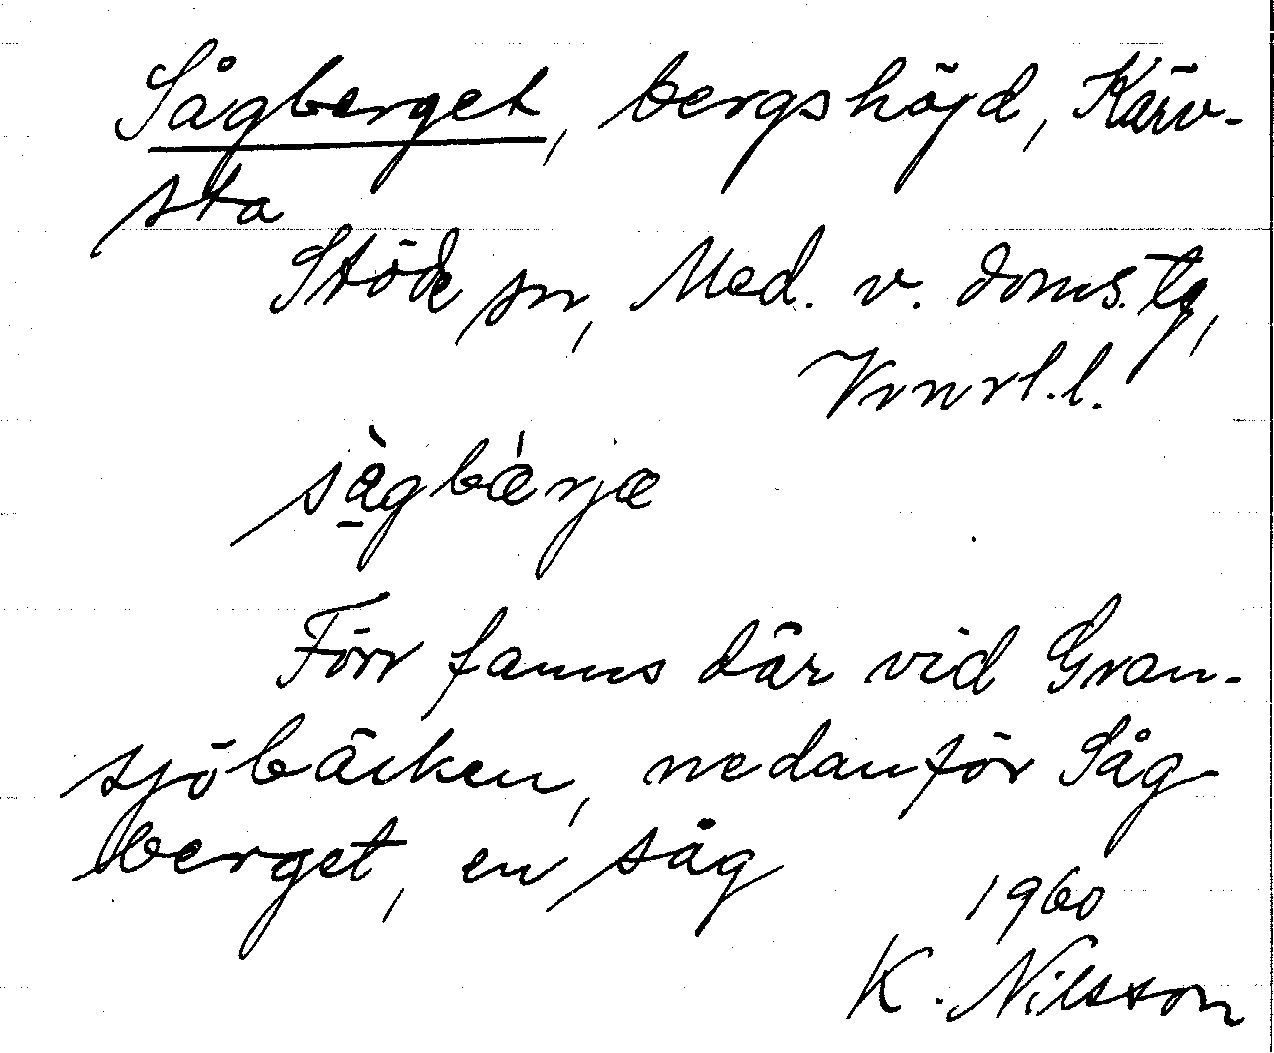 Sågberget, bergshöjd, Kärv-
sta
Stöde sn, Med. v. doms. tg,
Vrnrl. l.
sàgbǽrjæ
Förr fanns där vid Gran-
sjöbäcken, nedanför Såg
berget, en såg
1960
K. Nilsson